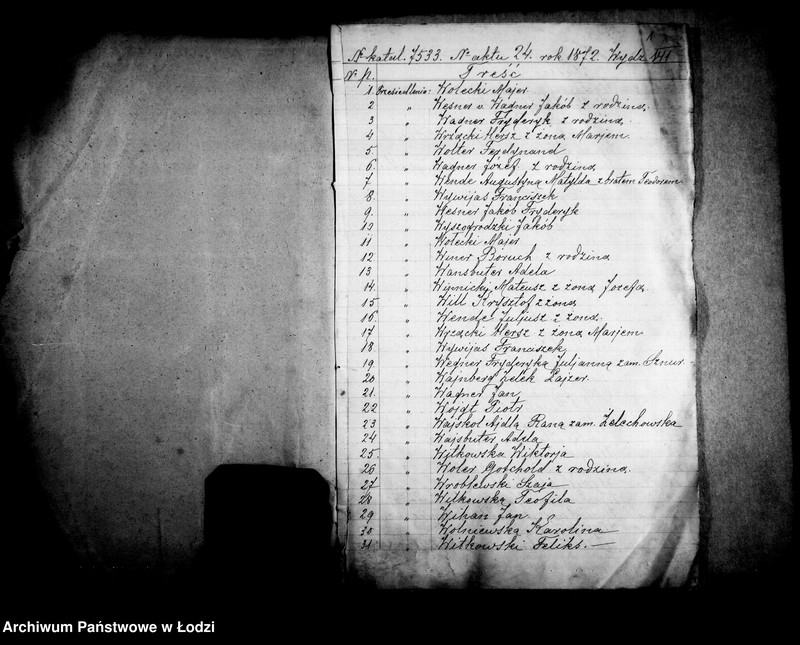 1
N katal. 7533. N aktu 24. rok 1872. Wydz. VII
N p. Treść
1 Przesiedlenie: Wołecki Majer
2 " Wesner v. Wagner Jakób z rodziną.
3 " Wagner Fryderyk z rodziną.
4 " Wrzącki Hersz z żoną Marjem.
5. " Wolter Ferdynand
6. " Wagner Józef z rodziną
7 " Wende Augustyna Matylda z bratem Teodorem
8. " Wywijas Franciszek
9. " Wesner Jakób Fryderyk
10 " Wyszogrodzki Jakób
11 " Wołecki Majer
12 " Winer Boruch z rodziną
13 " Wansbuter Adela
14. " Mateusz z żoną Józefą.
15 " Will Krysztof z żoną
16. " Wende Juljusz z żoną.
17 " Wrzącki Hersz z żoną Marjem
18. " Wywijas Franciszek
19 " Wegner Fryderyka Juljanna zam. Sznur.
20 " Wajnberg Zelek Lajzer.
21. " Wagner Jan
22 " Wojdt Piotr
23 " Wajskol Ajdla Rana zam. Zelechowska
24 " Wajsbuter Adela
25 " Witkowska Wiktorja
26 " Woler Gotchold z rodziną.
27 " Wroblewski Szaja
28 " Witkowska Teofila
29 " Wihan Jan
30 " Wolniewska Karolina
31 " Witkowski Feliks. —
Archiwum Państwowe w Łodzi